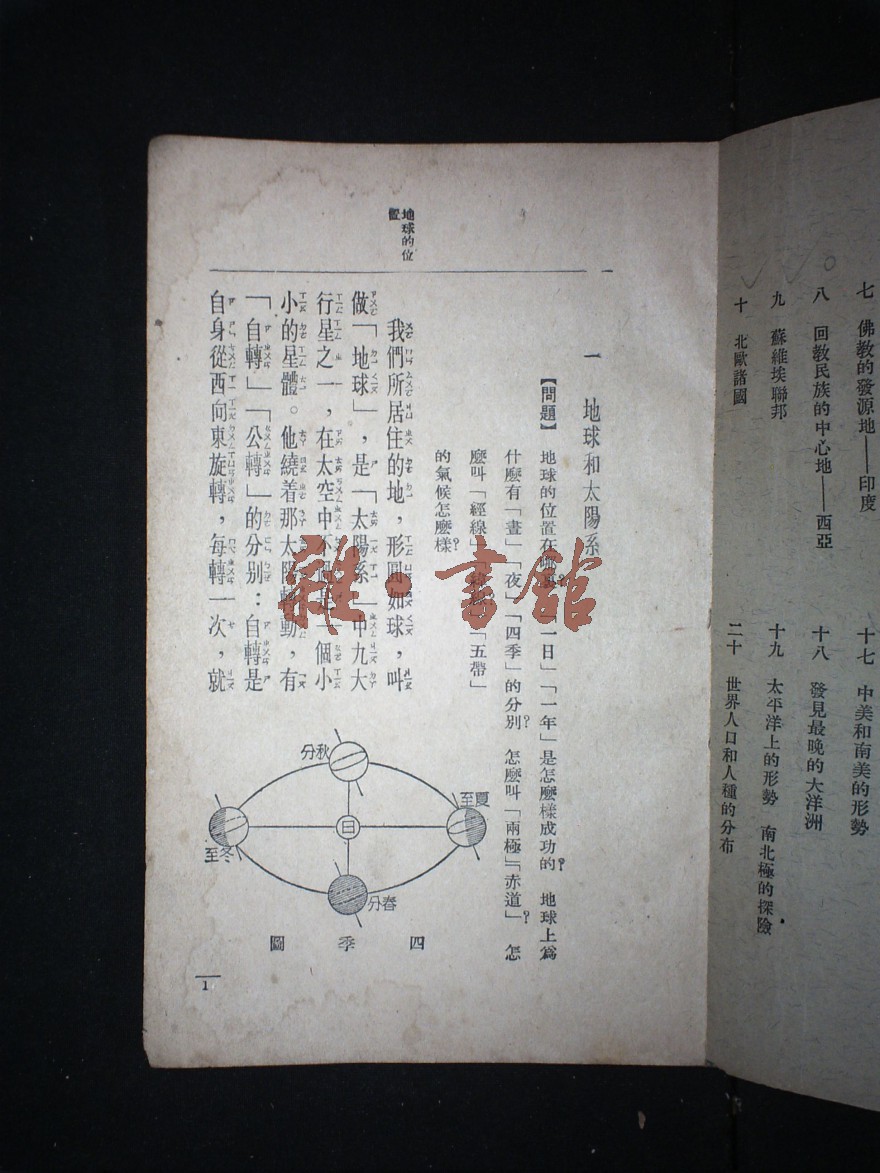 七 佛教的發源地——印度
八 回教民族的中心地——西亞
九 蘇維埃聯邦
十 北歐諸國
十七 中美和南美的形勢
十八 發見最晚的大洋洲
十九 太平洋上的形勢 南北極的探險
二十 世界人口和人種的分布
一 地球和太陽系
【問題】 地球的位置在 「一日」「一年」是怎麼樣成功的？ 地球上爲
什麼有「晝」「夜」「四季」的分別？ 怎麼叫「兩極」「赤道」？ 怎
麼叫「經線」 「五帶」
的氣候怎麼樣？
一
地球的位
置
我們所居住的地，形圓如球，叫
做「地球」，是「太陽系」中九大
行星之一，在太空中不過是一個小
小的星體。他繞着那太陽轉動，有
「自轉」「公轉」的分别：自轉是
自身從西向東旋轉，每轉一次，就
秋分
夏至
日
冬至
春分
四季圖
1
雜·書館